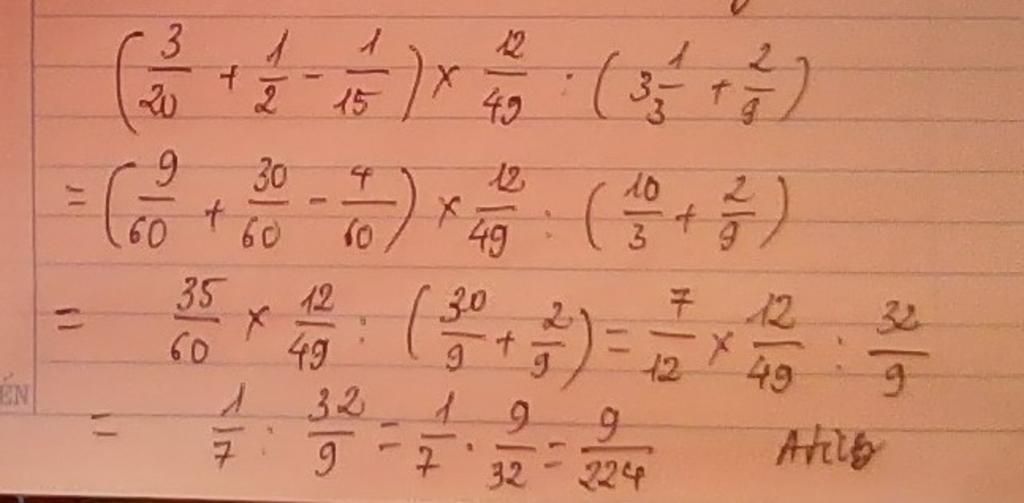 (3/20 + 1/2 - 1/15) × 12/49 : (3 1/3 + 2/9)
= (9/60 + 30/60 - 4/60) × 12/49 : (10/3 + 2/9)
= 35/60 × 12/49 : (30/9 + 2/9) = 7/12 × 12/49 : 32/9
ÉN
= 1/7 : 32/9 = 1/7 . 9/32 = 9/224